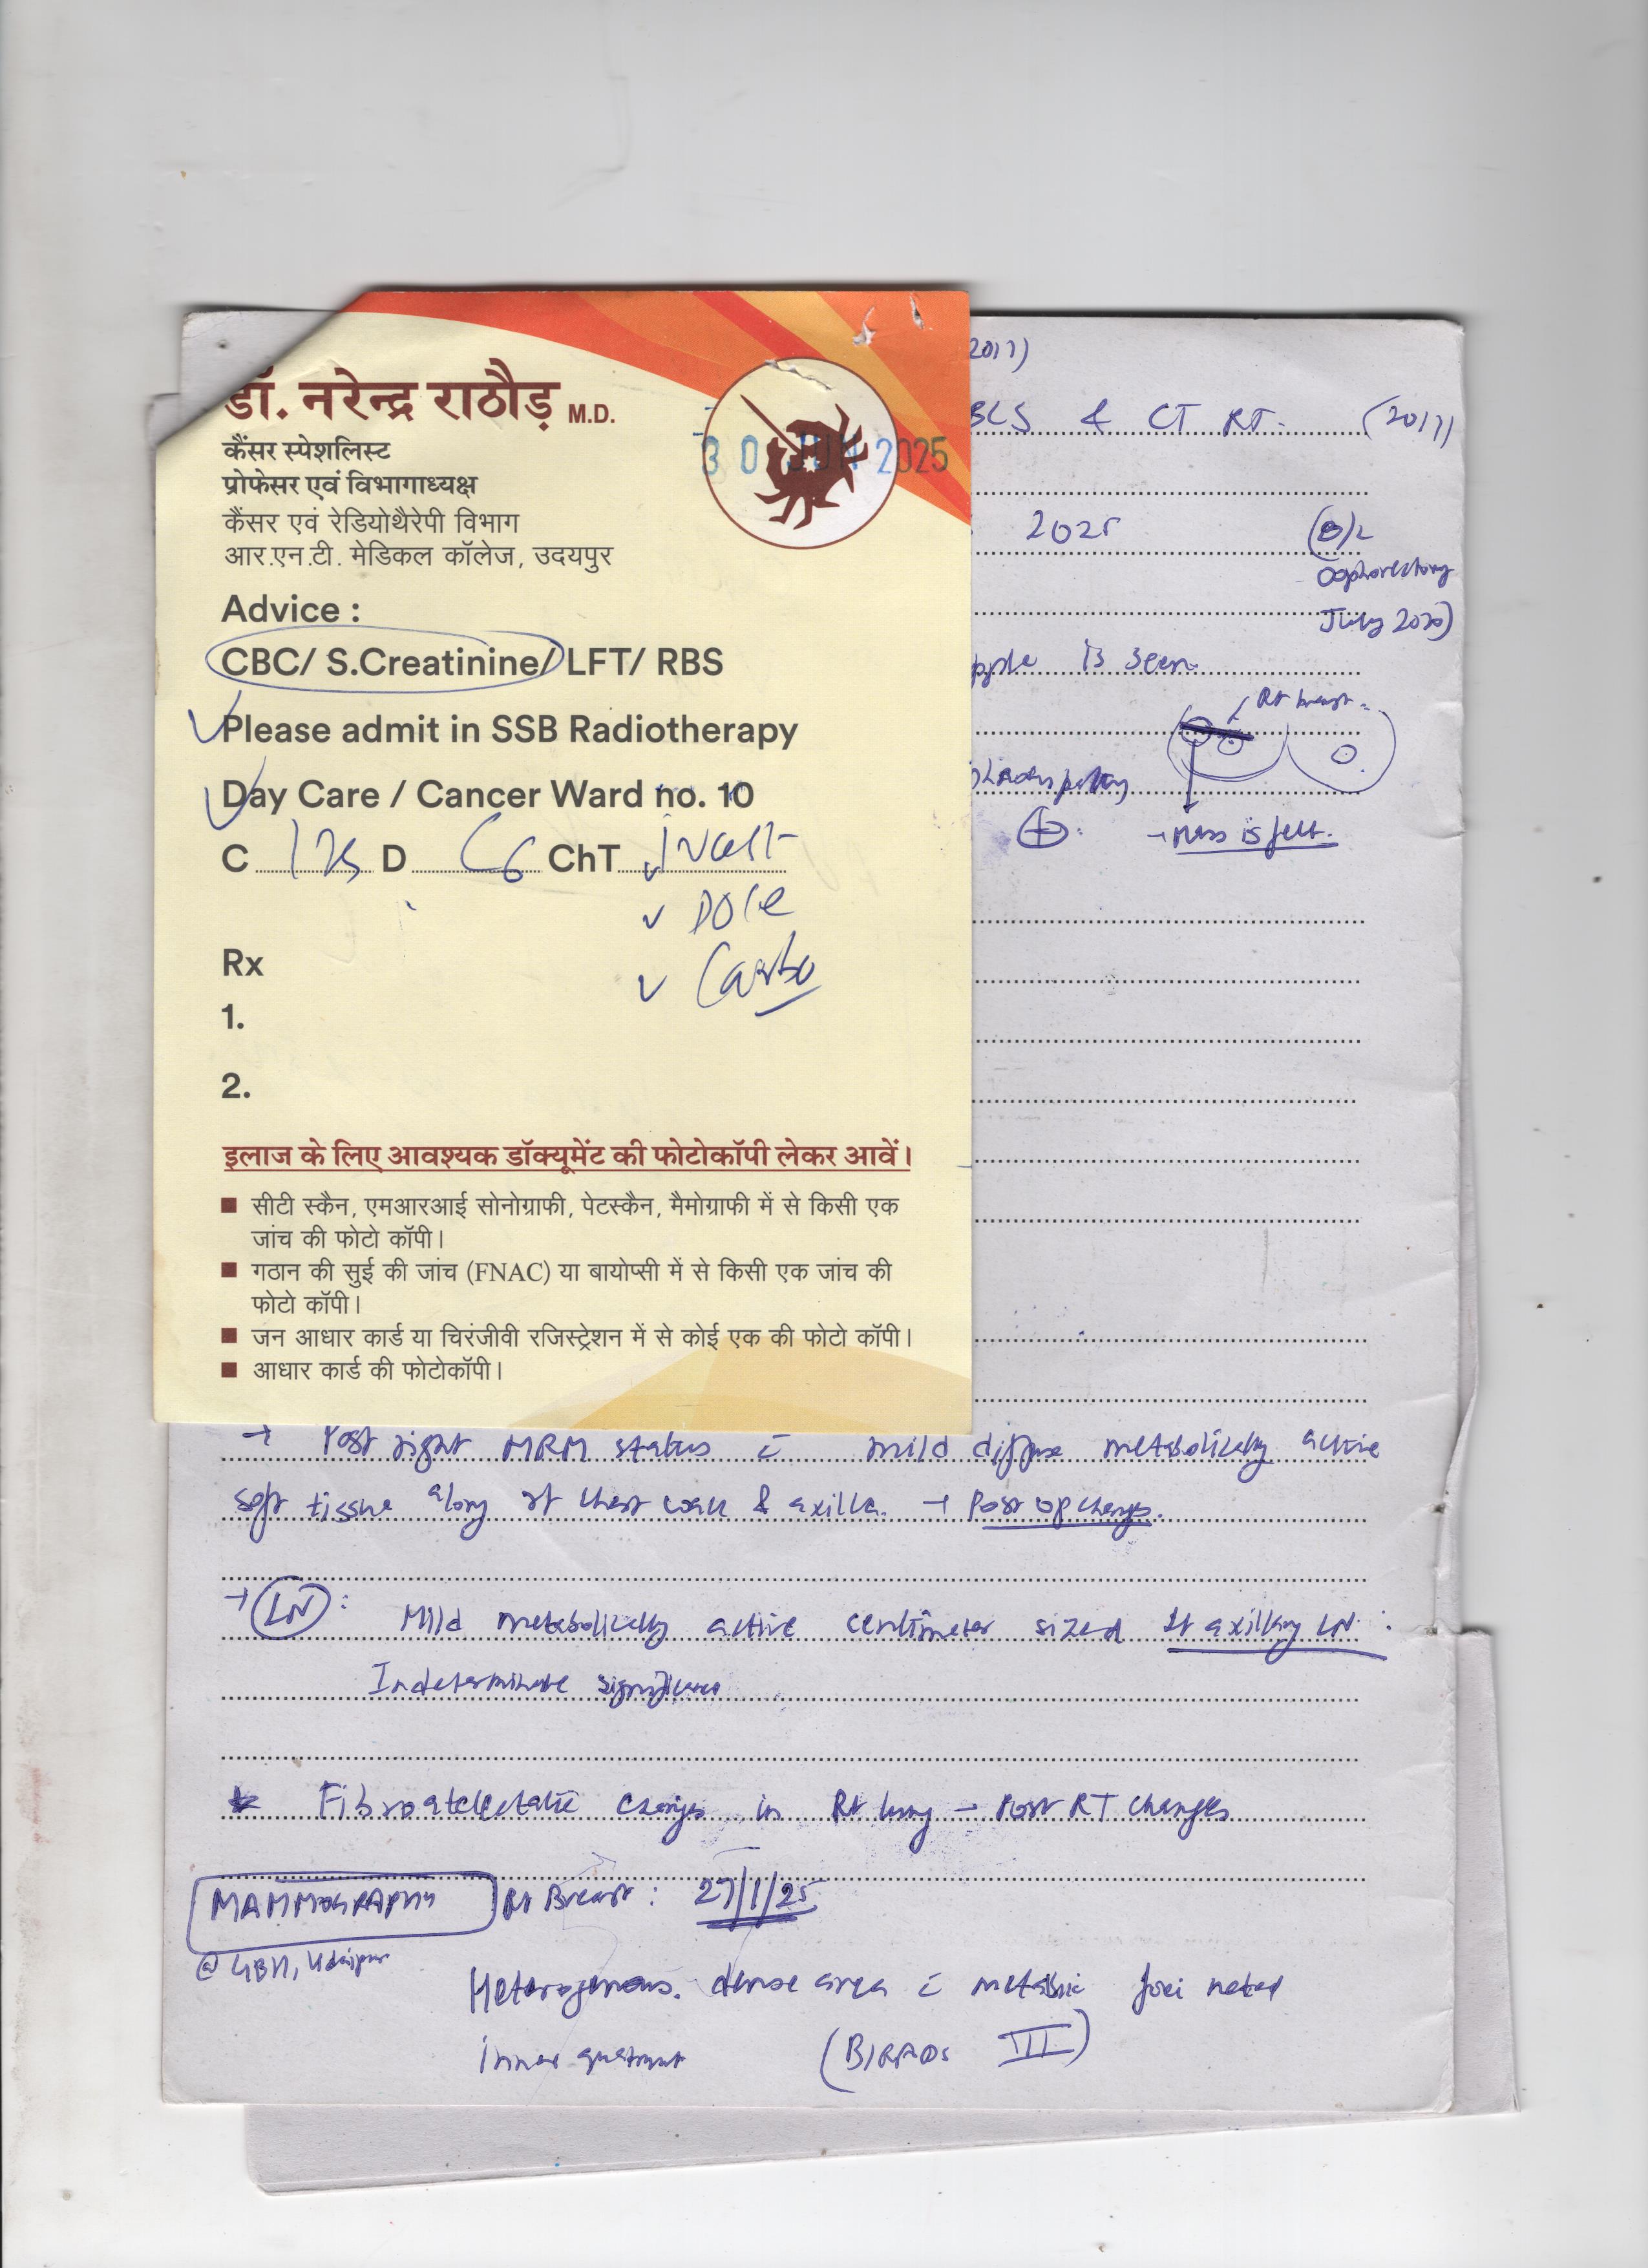 डॉ. नरेन्द्र राठौड़ M.D.
कैंसर स्पेशलिस्ट
प्रोफेसर एवं विभागाध्यक्ष
कैंसर एवं रेडियोथैरेपी विभाग
आर.एन.टी. मेडिकल कॉलेज, उदयपुर
30 JUN 2025
Advice :
CBC/ S.Creatinine/ LFT/ RBS
Please admit in SSB Radiotherapy
Day Care / Cancer Ward no. 10
C 125 D C6 ChT
Carbo
Rx
1.
2.
इलाज के लिए आवश्यक डॉक्यूमेंट की फोटोकॉपी लेकर आवें।
सीटी स्कैन, एमआरआई सोनोग्राफी, पेटस्कैन, मैमोग्राफी में से किसी एक
जांच की फोटो कॉपी।
गठान की सुई की जांच (FNAC) या बायोप्सी में से किसी एक जांच की
फोटो कॉपी।
जन आधार कार्ड या चिरंजीवी रजिस्ट्रेशन में से कोई एक की फोटो कॉपी।
आधार कार्ड की फोटोकॉपी।
2017)
BCS & CT RT. (2017)
2025 (B)/L
Oophorectomy
July 2020)
is seen.
Rt breast.
→ Mass is felt.
→ Post right MRM status c̄ mild diffuse metabolically active
soft tissue along rt chest wall & axilla. → Post op changes.
→ LN : Mild metabolically active centimeter sized lt axillary LN :
Indeterminate significance
* Fibroatelectatic changes in Rt lung → Post RT changes
MAMMOGRAPHY Rt Breast : 27/1/25
@ GBH, Udaipur
Heterogenous. dense area c̄ foci noted
inner quadrant (BIRADs III)